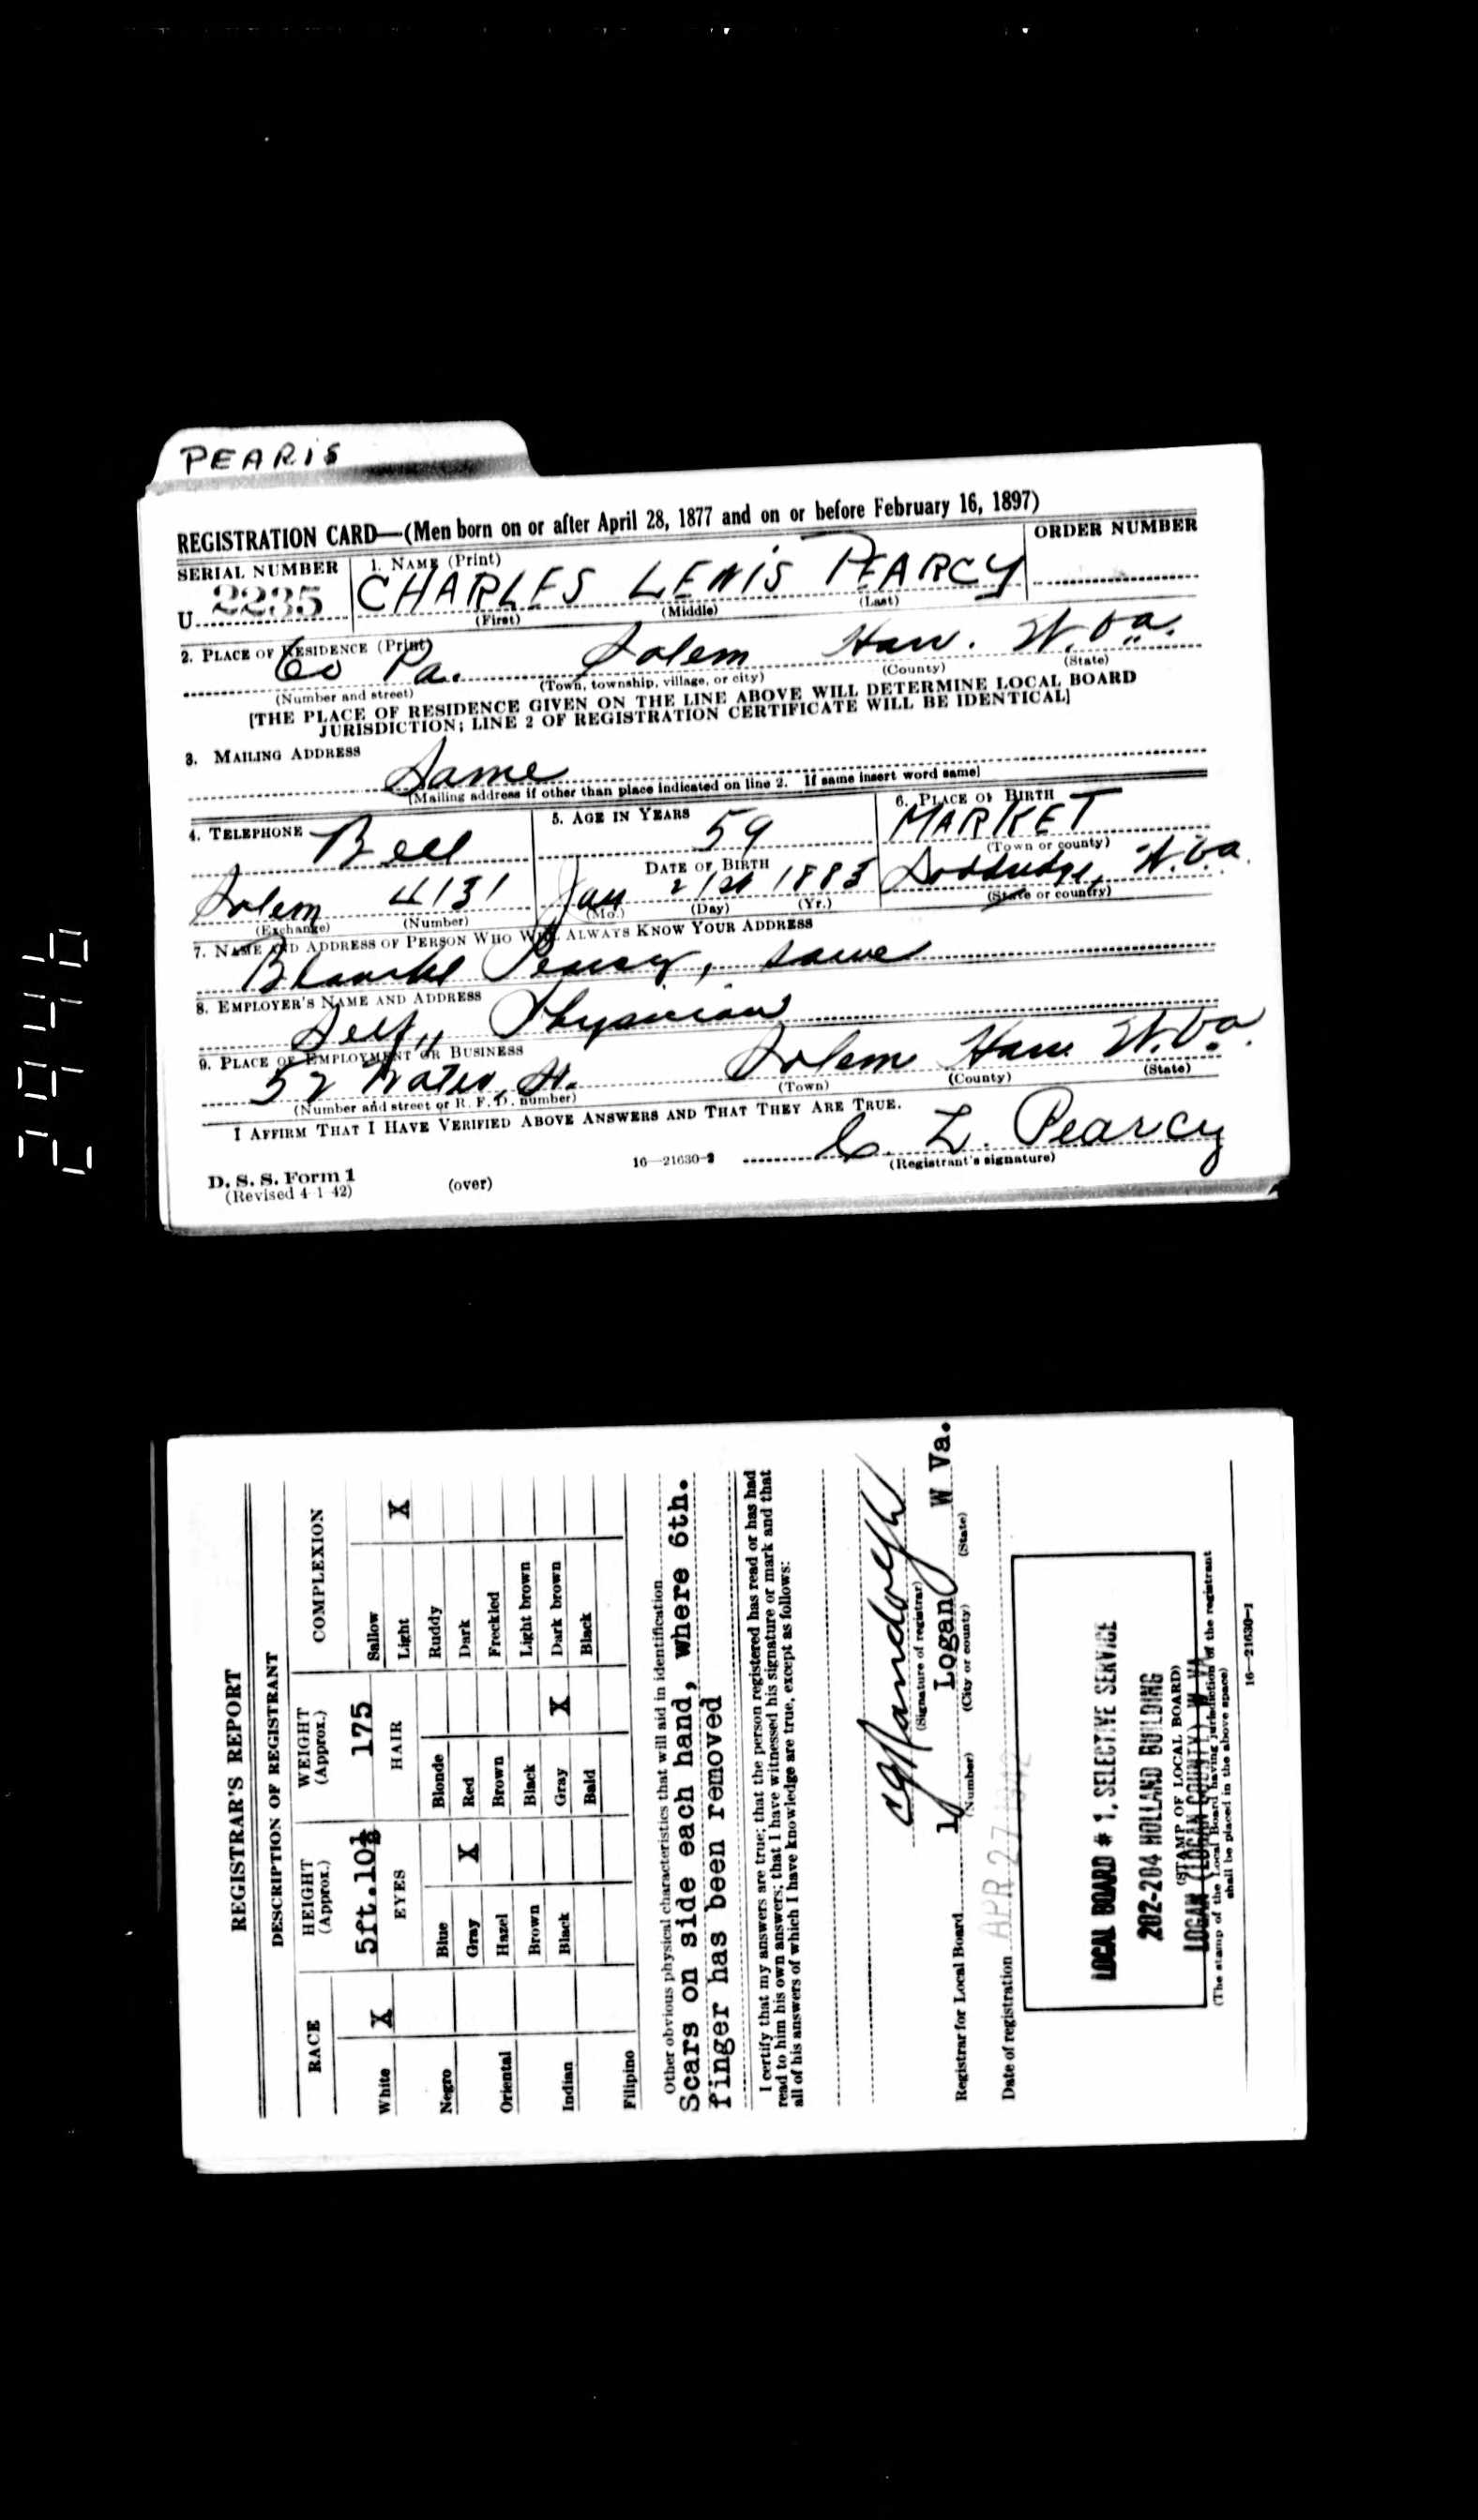 2946
PEARiS
REGISTRATION CARD—(Men born on or after April 28, 1877 and on or before February 16, 1897)
SERIAL NUMBER
1. NAME (Print)
ORDER NUMBER
U 2235
CHARLES LEWIS PEARCY
(First) (Middle) (Last)
2. PLACE OF RESIDENCE (Print)
Pa. Salem Harr. W. Va.
(Number and street) (Town, township, village, or city) (County) (State)
[THE PLACE OF RESIDENCE GIVEN ON THE LINE ABOVE WILL DETERMINE LOCAL BOARD
JURISDICTION; LINE 2 OF REGISTRATION CERTIFICATE WILL BE IDENTICAL]
3. MAILING ADDRESS
Same
[Mailing address if other than place indicated on line 2. If same insert word same]
4. TELEPHONE
Bell
Salem 4131
(Exchange) (Number)
5. AGE IN YEARS
59
DATE OF BIRTH
Jan 21st 1883
(Mo.) (Day) (Yr.)
6. PLACE OF BIRTH
MARKET
(Town or county)
Doddridge, W. Va.
(State or country)
7. NAME AND ADDRESS OF PERSON WHO WILL ALWAYS KNOW YOUR ADDRESS
Blanche Pearcy, same
8. EMPLOYER'S NAME AND ADDRESS
Self, Physician
9. PLACE OF EMPLOYMENT OR BUSINESS
52 Water St. Salem Harr. W. Va.
(Number and street or R. F. D. number) (Town) (County) (State)
I AFFIRM THAT I HAVE VERIFIED ABOVE ANSWERS AND THAT THEY ARE TRUE.
C. L. Pearcy
D. S. S. Form 1
(Revised 4-1-42) (over) 16—21630-2 (Registrant's signature)
REGISTRAR'S REPORT
DESCRIPTION OF REGISTRANT
RACE
HEIGHT (Approx.)
WEIGHT (Approx.)
COMPLEXION
5ft.10½
175
EYES
HAIR
White X
Negro
Oriental
Indian
Filipino
Blue
Gray X
Hazel
Brown
Black
Blonde
Red
Brown
Black
Gray X
Bald
Sallow
Light X
Ruddy
Dark
Freckled
Light brown
Dark brown
Black
Other obvious physical characteristics that will aid in identification
Scars on side each hand, where 6th.
finger has been removed
I certify that my answers are true; that the person registered has read or has had
read to him his own answers; that I have witnessed his signature or mark and that
all of his answers of which I have knowledge are true, except as follows:
(Signature of registrar)
Registrar for Local Board 1 Logan W Va.
(Number) (City or county) (State)
Date of registration APR 27 1942
LOCAL BOARD # 1, SELECTIVE SERVICE
202-204 HOLLAND BUILDING
(STAMP OF LOCAL BOARD)
LOGAN (LOGAN COUNTY) W VA
(The stamp of the Local Board having jurisdiction of the registrant
shall be placed in the above space)
16—21630-1